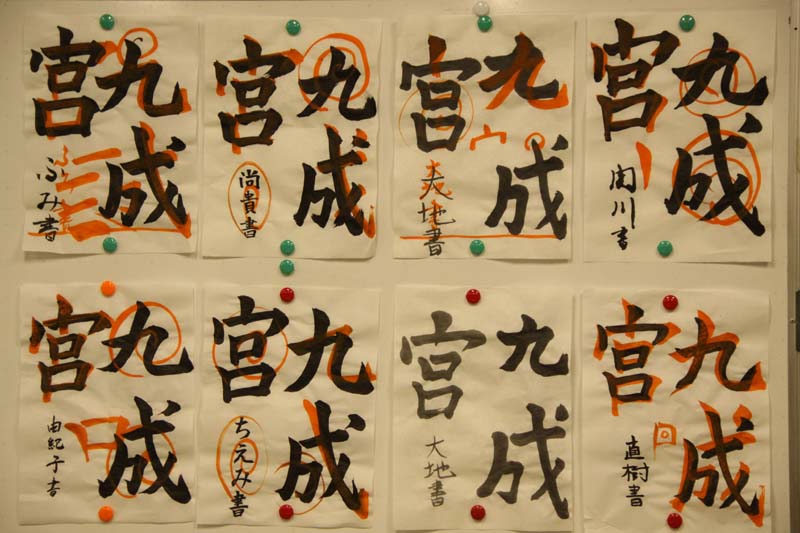 九成
宮
ふみ書
九成
宮
尚貴書
九成
宮
大地書
九成
宮
川書
九成
宮
由紀子書
九成
宮
ちえみ書
九成
宮
大地書
九成
宮
直樹書